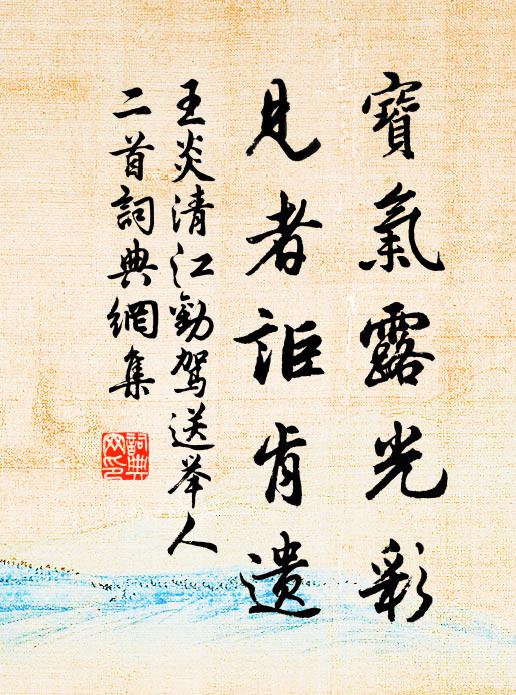 寶氣露光彩
見者詎肯遺
王炎清江勸駕送举人
二首詞典網集
詞典網印